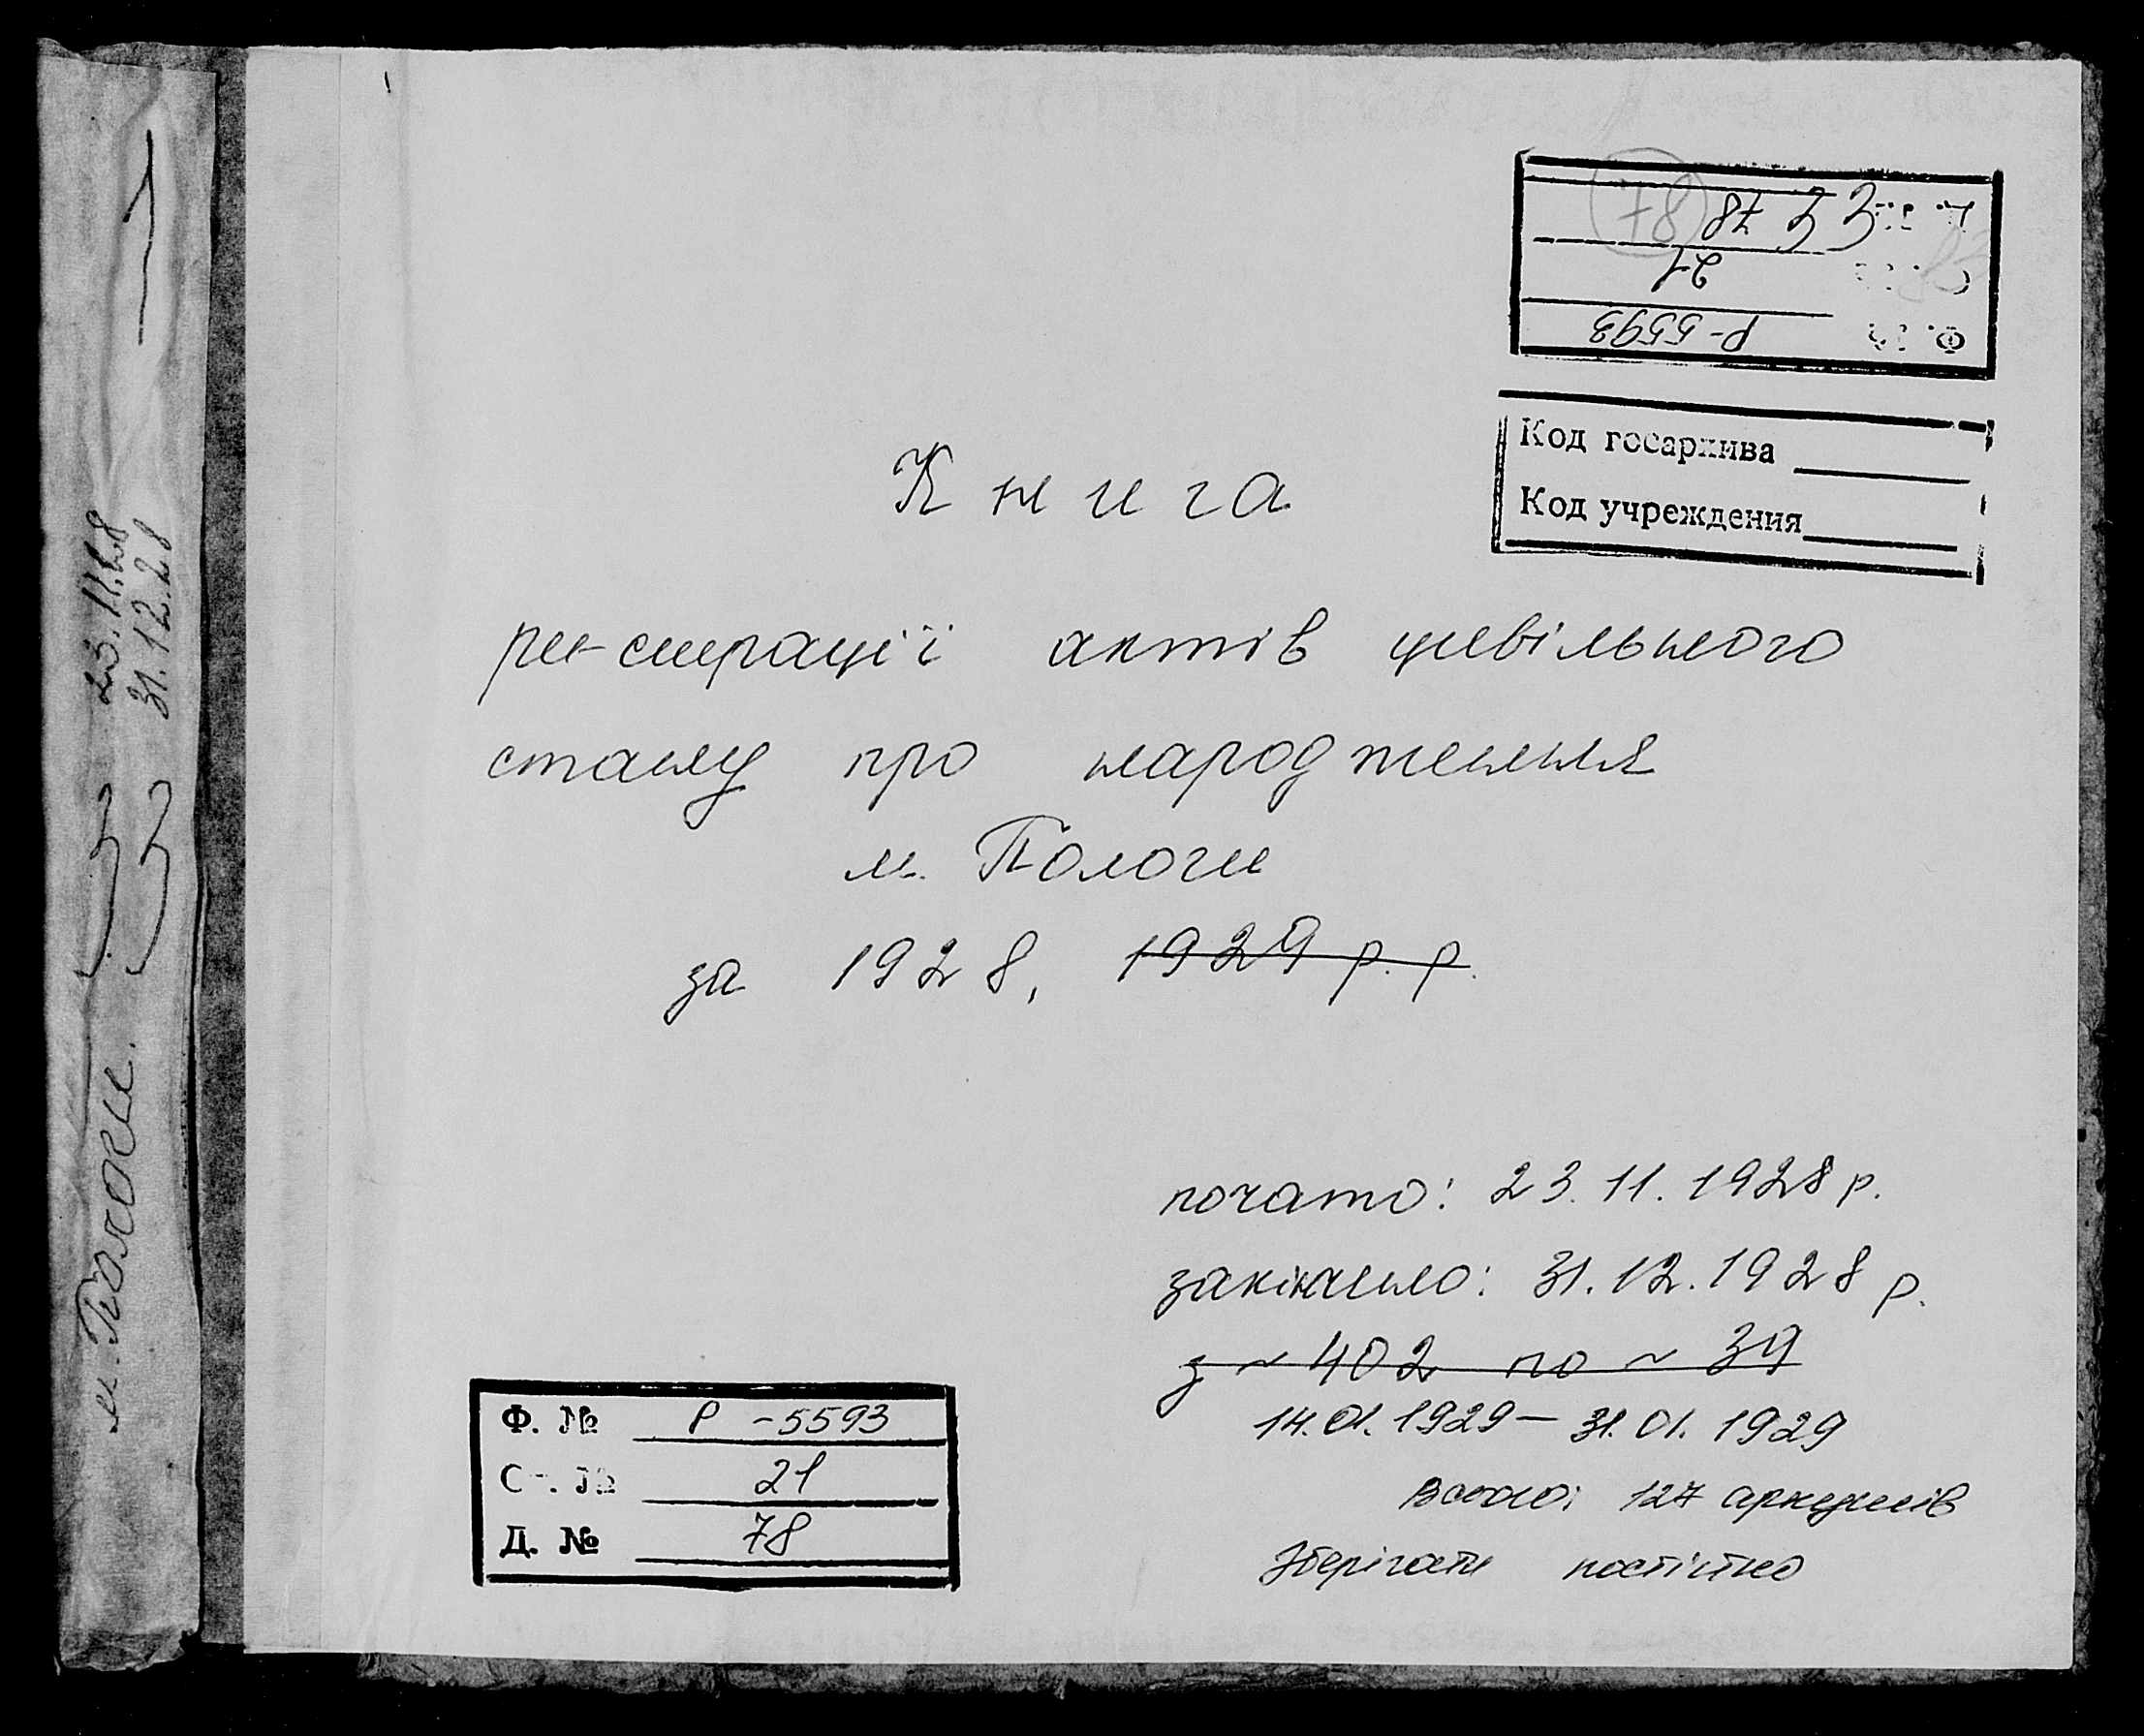 Ф. № Р-5593
21
78
78
Код госархива
Код учреждения
Книга
реєстрації актів цивільного
стану про народження
м. Пологи
за 1928, 1929 р.р.
почато: 23.11.1928 р.
закінчено: 31.12.1928 р.
з ~ 402 по ~ 39
14.01.1929 – 31.01.1929
Всього: 127 аркушів
Зберігати постійно
Ф. № Р-5593
Оп. № 21
Д. № 78
м. Пологи.
23.11.28
31.12.28